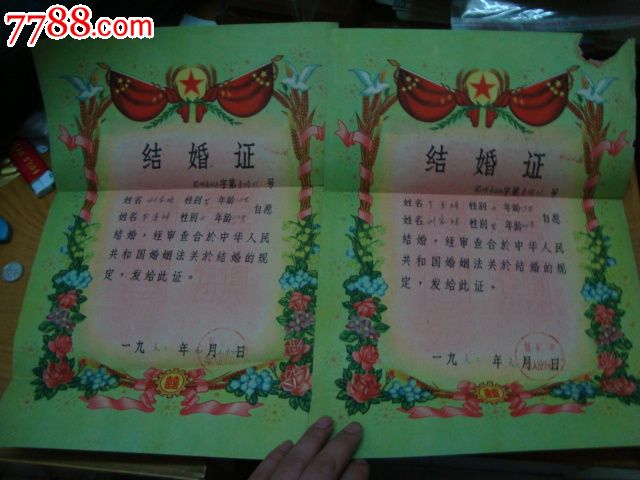 7788.com
结婚证
字第 号
姓名 性别 年龄 自愿
姓名 性别 年龄
结婚，经审查合於中华人民
共和国婚姻法关於结婚的规
定，发给此证。
一九 年 月 日
结婚证
字第 号
姓名 性别 年龄 自愿
姓名 性别 年龄
结婚，经审查合於中华人民
共和国婚姻法关於结婚的规
定，发给此证。
一九 年 月 日